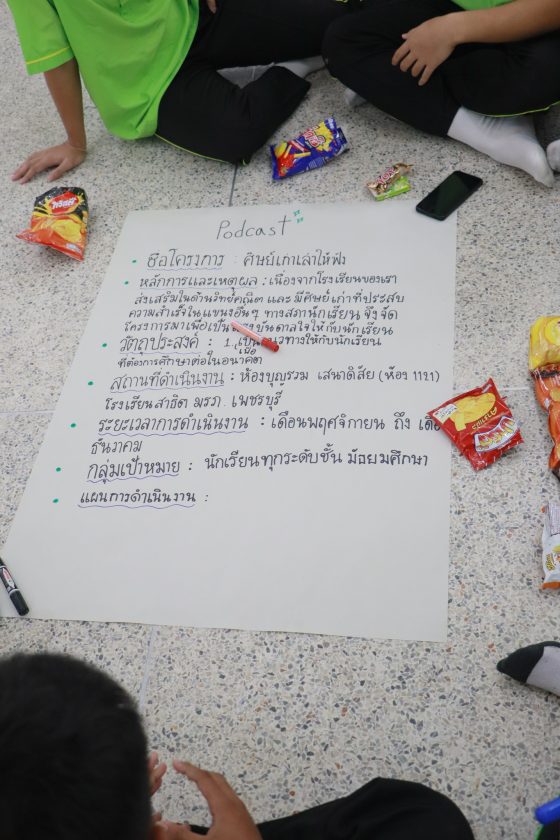 Podcast
ชื่อโครงการ : ศิษย์เก่าเล่าให้ฟัง
หลักการและเหตุผล : เนื่องจากโรงเรียนของเรา
ส่งเสริมในด้านวิทย์คณิตฯ และ มีศิษย์เก่าที่ประสบ
ความสำเร็จในแขนงอื่นๆ ทางสภานักเรียน จึงจัด
โครงการมาเพื่อเป็น บันดาลใจให้กับนักเรียน
วัตถุประสงค์ : 1. เพื่อเป็น ทางให้กับนักเรียน
ที่ต้องการศึกษาต่อในอนาคต
สถานที่ดำเนินงาน : ห้องบุญรวม เสนาดิสัย (ห้อง 1121)
โรงเรียนสาธิต มรภ. เพชรบุรี
ระยะเวลาการดำเนินงาน : เดือนพฤศจิกายน ถึง
ธันวาคม
กลุ่มเป้าหมาย : นักเรียนทุกระดับชั้น มัธยมศึกษา
แผนการดำเนินงาน :